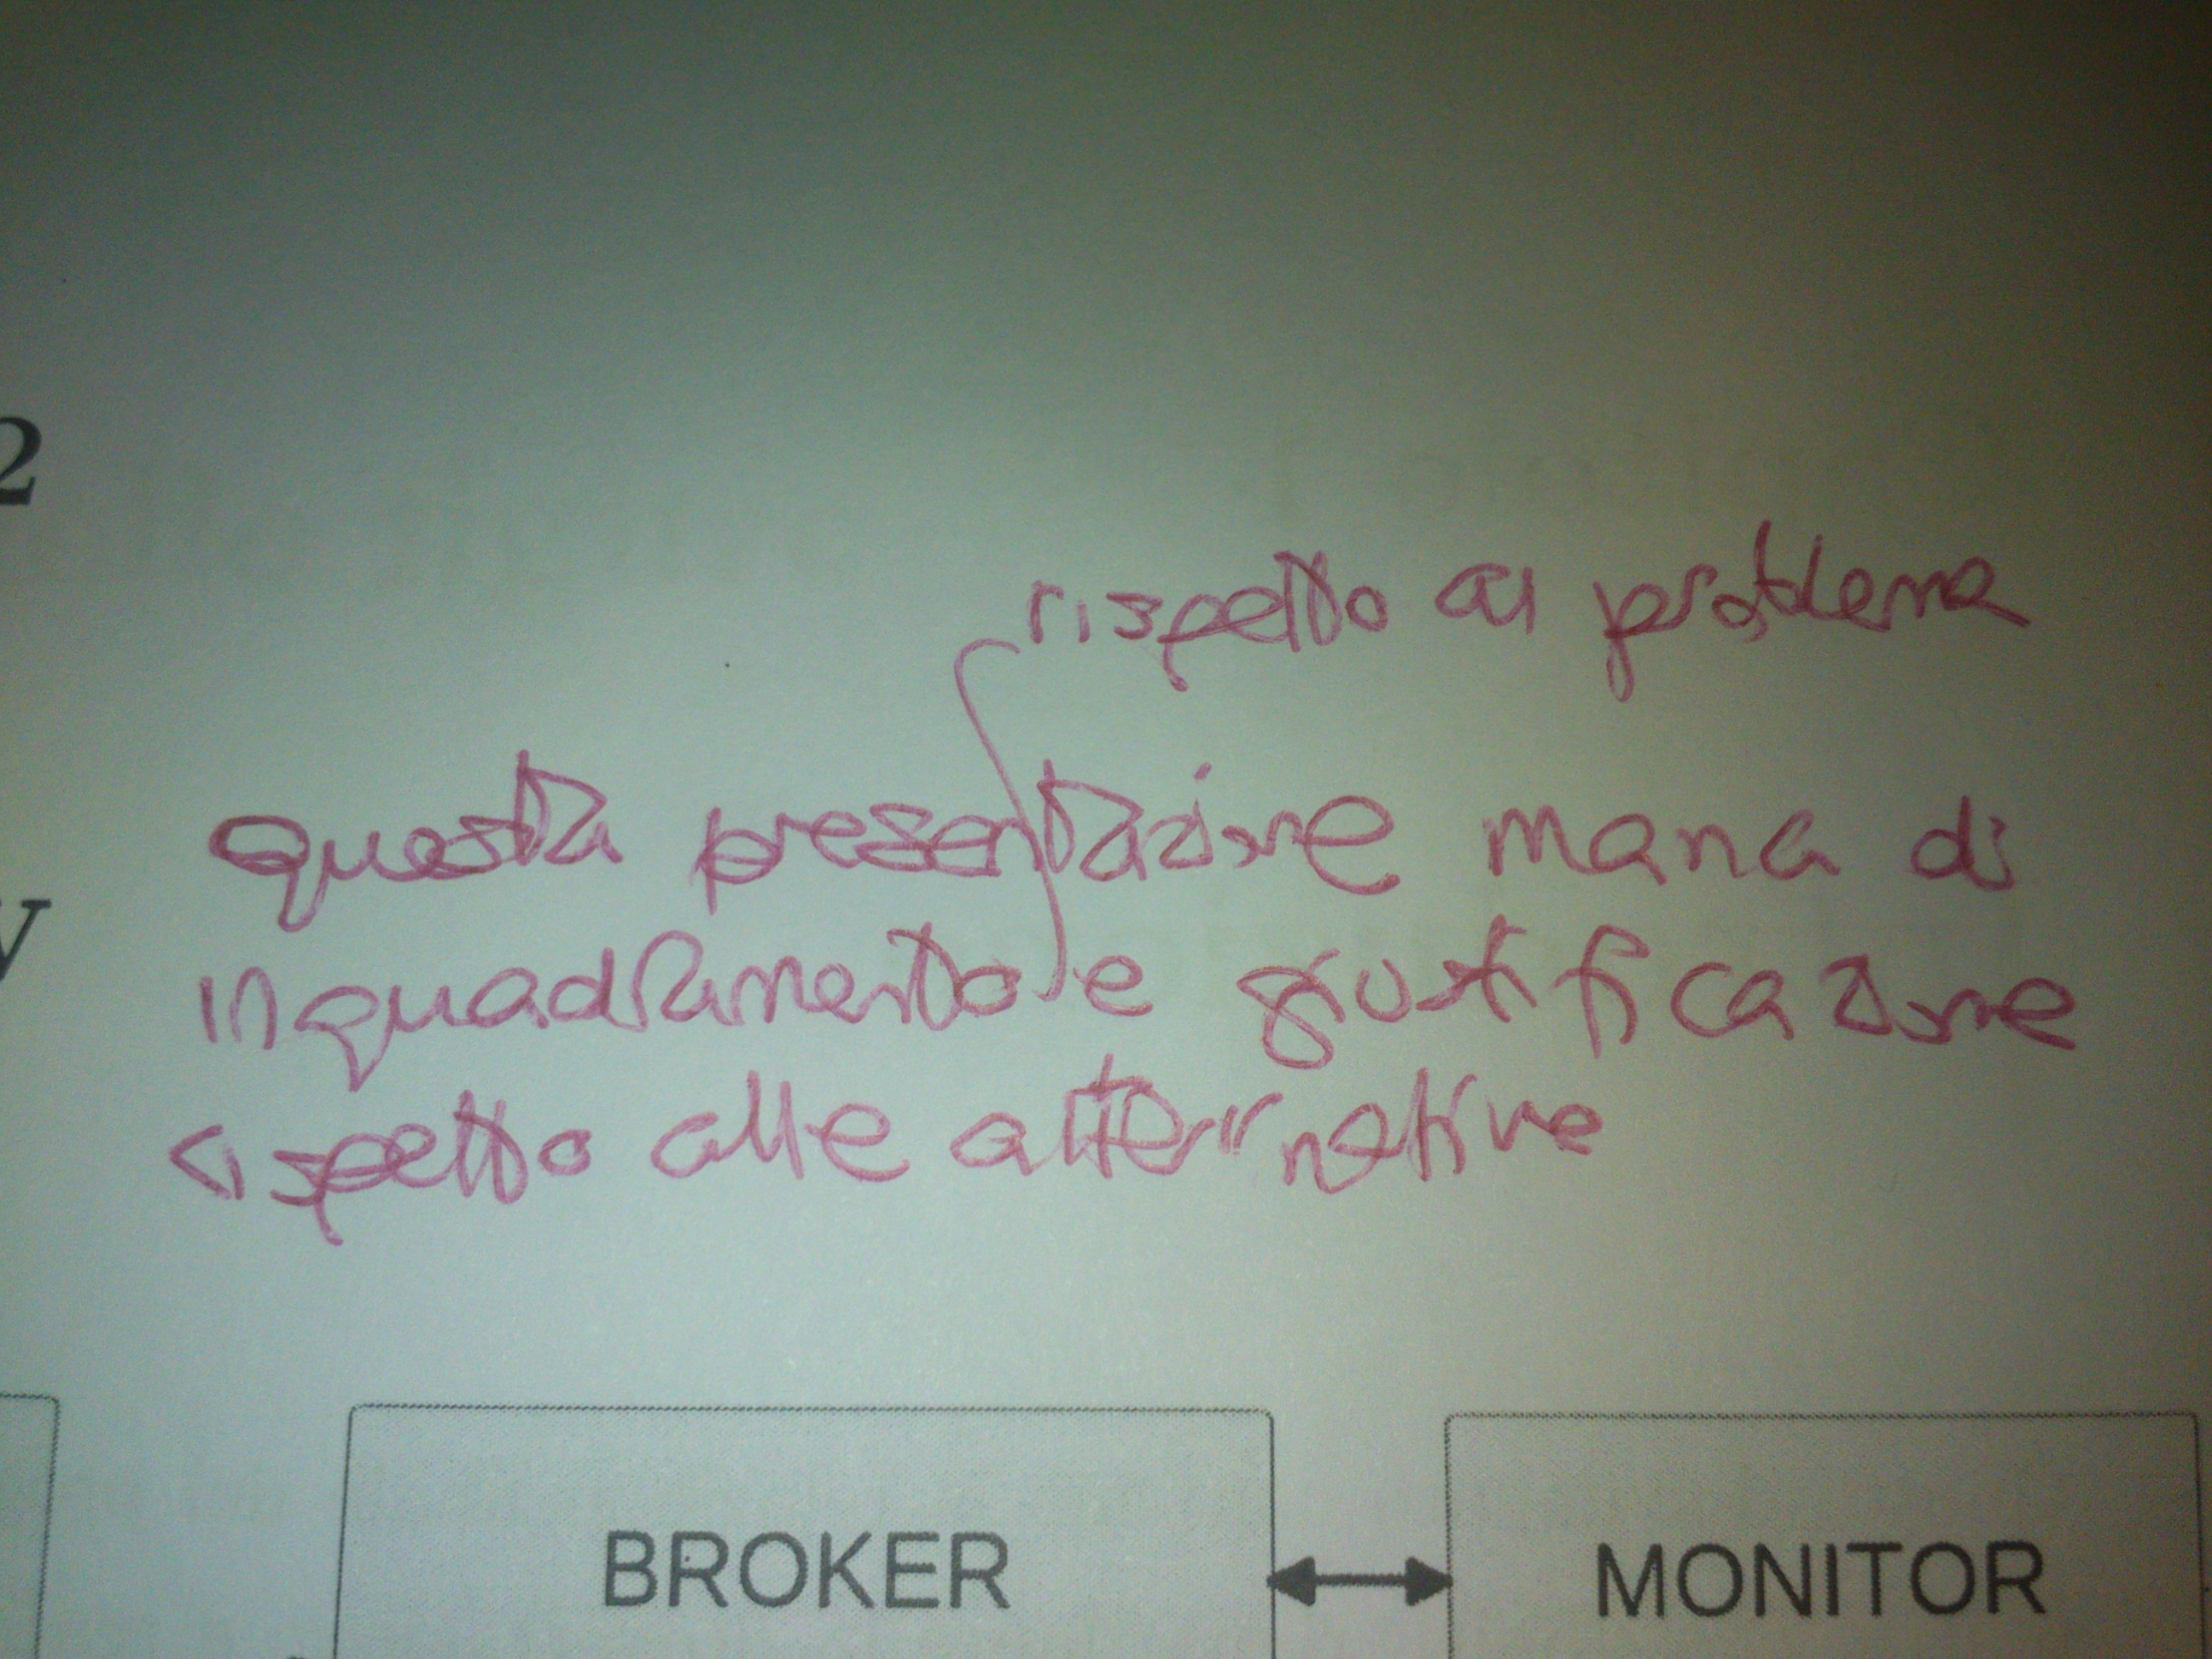 2
rispetto al problema
questa presentazione manca di
y
inquadramento e giustificazione
rispetto alle alternative
BROKER
MONITOR